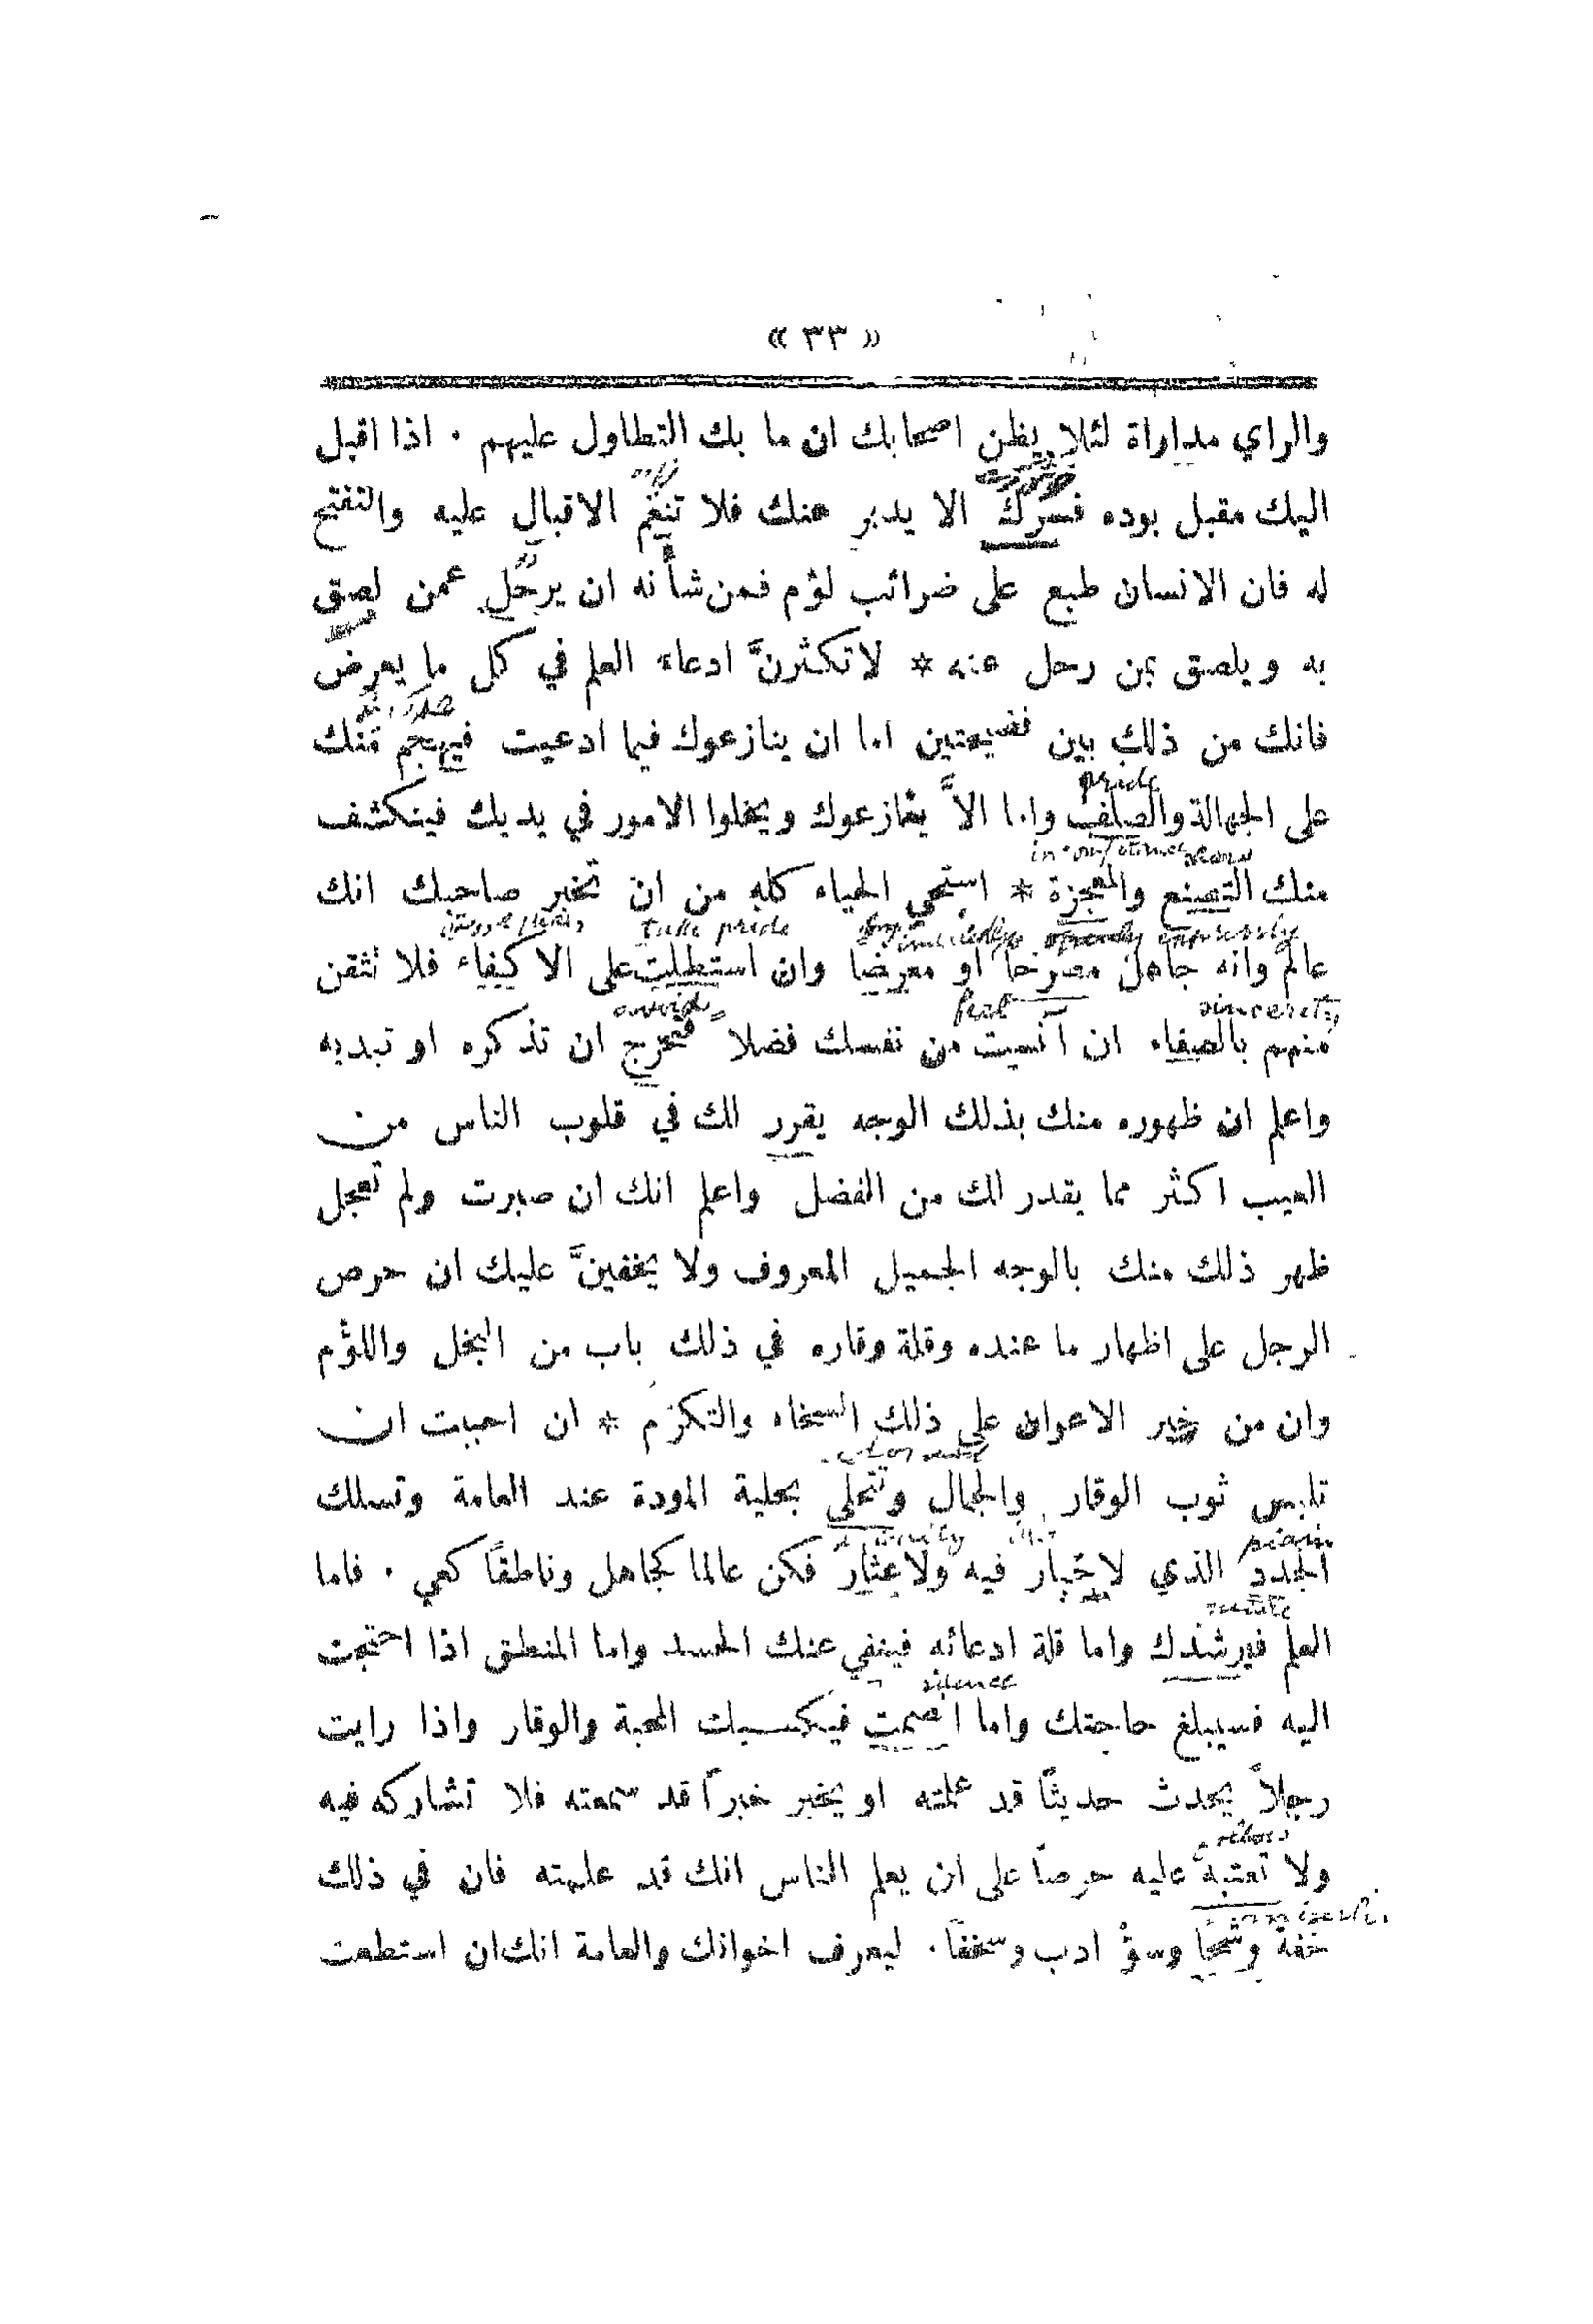 « ٣٣ »
والراي مداراة لئلا يظن اصحابك ان ما بك التطاول عليهم . اذا اقبل
اليك مقبل بوده فسرك الا يدبر عنك فلا تنعم الاقبال عليه والتفتح
له فان الانسان طبع على ضرائب لؤم فمن شأنه ان يرحل عمن لصق
به ويلصق بمن رحل عنه * لا تكثرنَّ ادعاء العلم في كل ما يعرض
فانك من ذلك بين فضيحتين اما ان ينازعوك فيما ادعيت فيهجم منك
pride
على الجهالة والصلف واما الاَّ ينازعوك ويخلوا الامور في يديك فينكشف
منك التصنع والمعجزة * استحي الحياء كله من ان تخبر صاحبك انك
take pride openly expressly
عالم وانه جاهل مصرحا او معرضا وان استطلت على الاكفاء فلا نثقن
avoid feel sincerity
منهم بالصفاء ان آنست من نفسك فضلا فتحرج ان تذكره او تبديه
واعلم ان ظهوره منك بذلك الوجه يقرر لك في قلوب الناس من
العيب اكثر مما يقدر لك من الفضل واعلم انك ان صبرت ولم تعجل
ظهر ذلك منك بالوجه الجميل المعروف ولا يخفينَّ عليك ان حرص
الرجل على اظهار ما عنده وقلة وقاره في ذلك باب من البخل واللؤم
وان من خير الاعوان على ذلك السخاء والتكرم * ان احببت ان
تلبس ثوب الوقار والجمال وتتحلى بحلية المودة عند العامة وتسلك
الجدد الذي لا خبار فيه ولا عثار فكن عالما كجاهل وناطقًا كعي . فاما
العلم فيرشدك واما قلة ادعائه فينفي عنك الحسد واما المنطق اذا احتجت
silence
اليه فسيبلغ حاجتك واما الصمت فيكسبك المحبة والوقار واذا رايت
رجلاً يحدث حديثًا قد علمته او يخبر خبرًا قد سمعته فلا تشاركه فيه
ولا تعتبه عليه حرصًا على ان يعلم الناس انك قد علمته فان في ذلك
خفة وشحا وسؤ ادب وسخفًا . ليعرف اخوانك والعامة انك ان استطعت